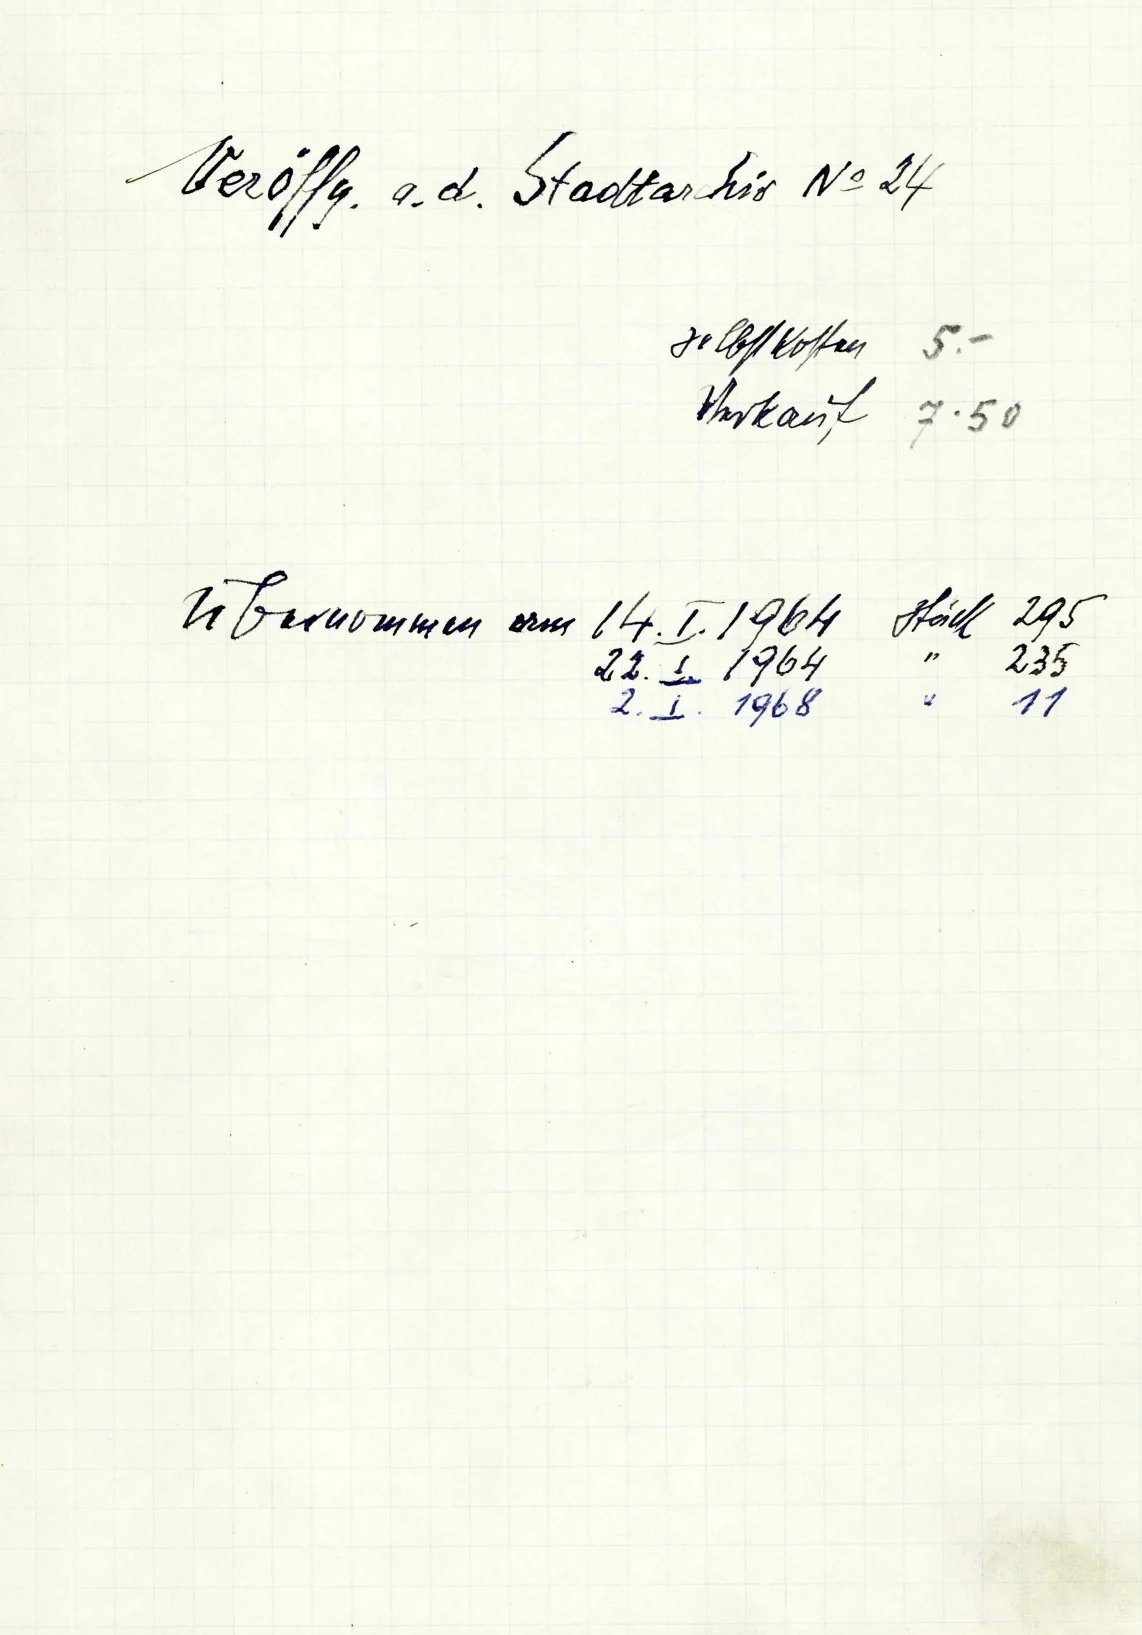 Veröffg. a. d. Stadtarchiv No 24
Selbstkosten 5.-
Verkauf 7.50
Übernommen am 14. I. 1964 Stück 295
22. I. 1964 " 235
2. I. 1968 " 11